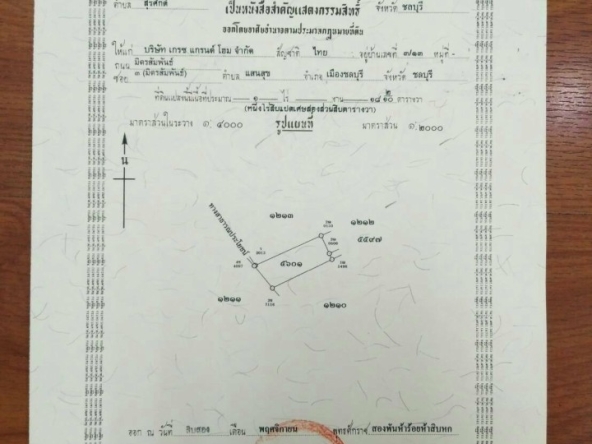 ตำบล สุรศักดิ์ จังหวัด ชลบุรี
เป็นหนังสือสำคัญแสดงกรรมสิทธิ์
ออกโดยอาศัยอำนาจตามประมวลกฎหมายที่ดิน
ให้แก่ บริษัท เกรซ แกรนด์ โฮม จำกัด สัญชาติ ไทย อยู่บ้านเลขที่ ๗/๑๓ หมู่ที่ -
ถนน มิตรสัมพันธ์
ซอย ๓ (มิตรสัมพันธ์) ตำบล แสนสุข อำเภอ เมืองชลบุรี จังหวัด ชลบุรี
ที่ดินแปลงนี้มีเนื้อที่ประมาณ ๑ ไร่ - งาน ๑๘ ๒/๑๐ ตารางวา
(หนึ่งไร่สิบแปดเศษสองส่วนสิบตารางวา)
มาตราส่วนในระวาง ๑: ๔๐๐๐ รูปแผนที่ มาตราส่วน ๑: ๒๐๐๐
น
ทางสาธารณประโยชน์
๑๒๑๓
๑๒๑๒
๕๕๙๗
๕๖๐๑
๑๒๑๑
๑๒๑๐
ออก ณ วันที่ สิบสอง เดือน พฤศจิกายน พุทธศักราช สองพันห้าร้อยห้าสิบหก